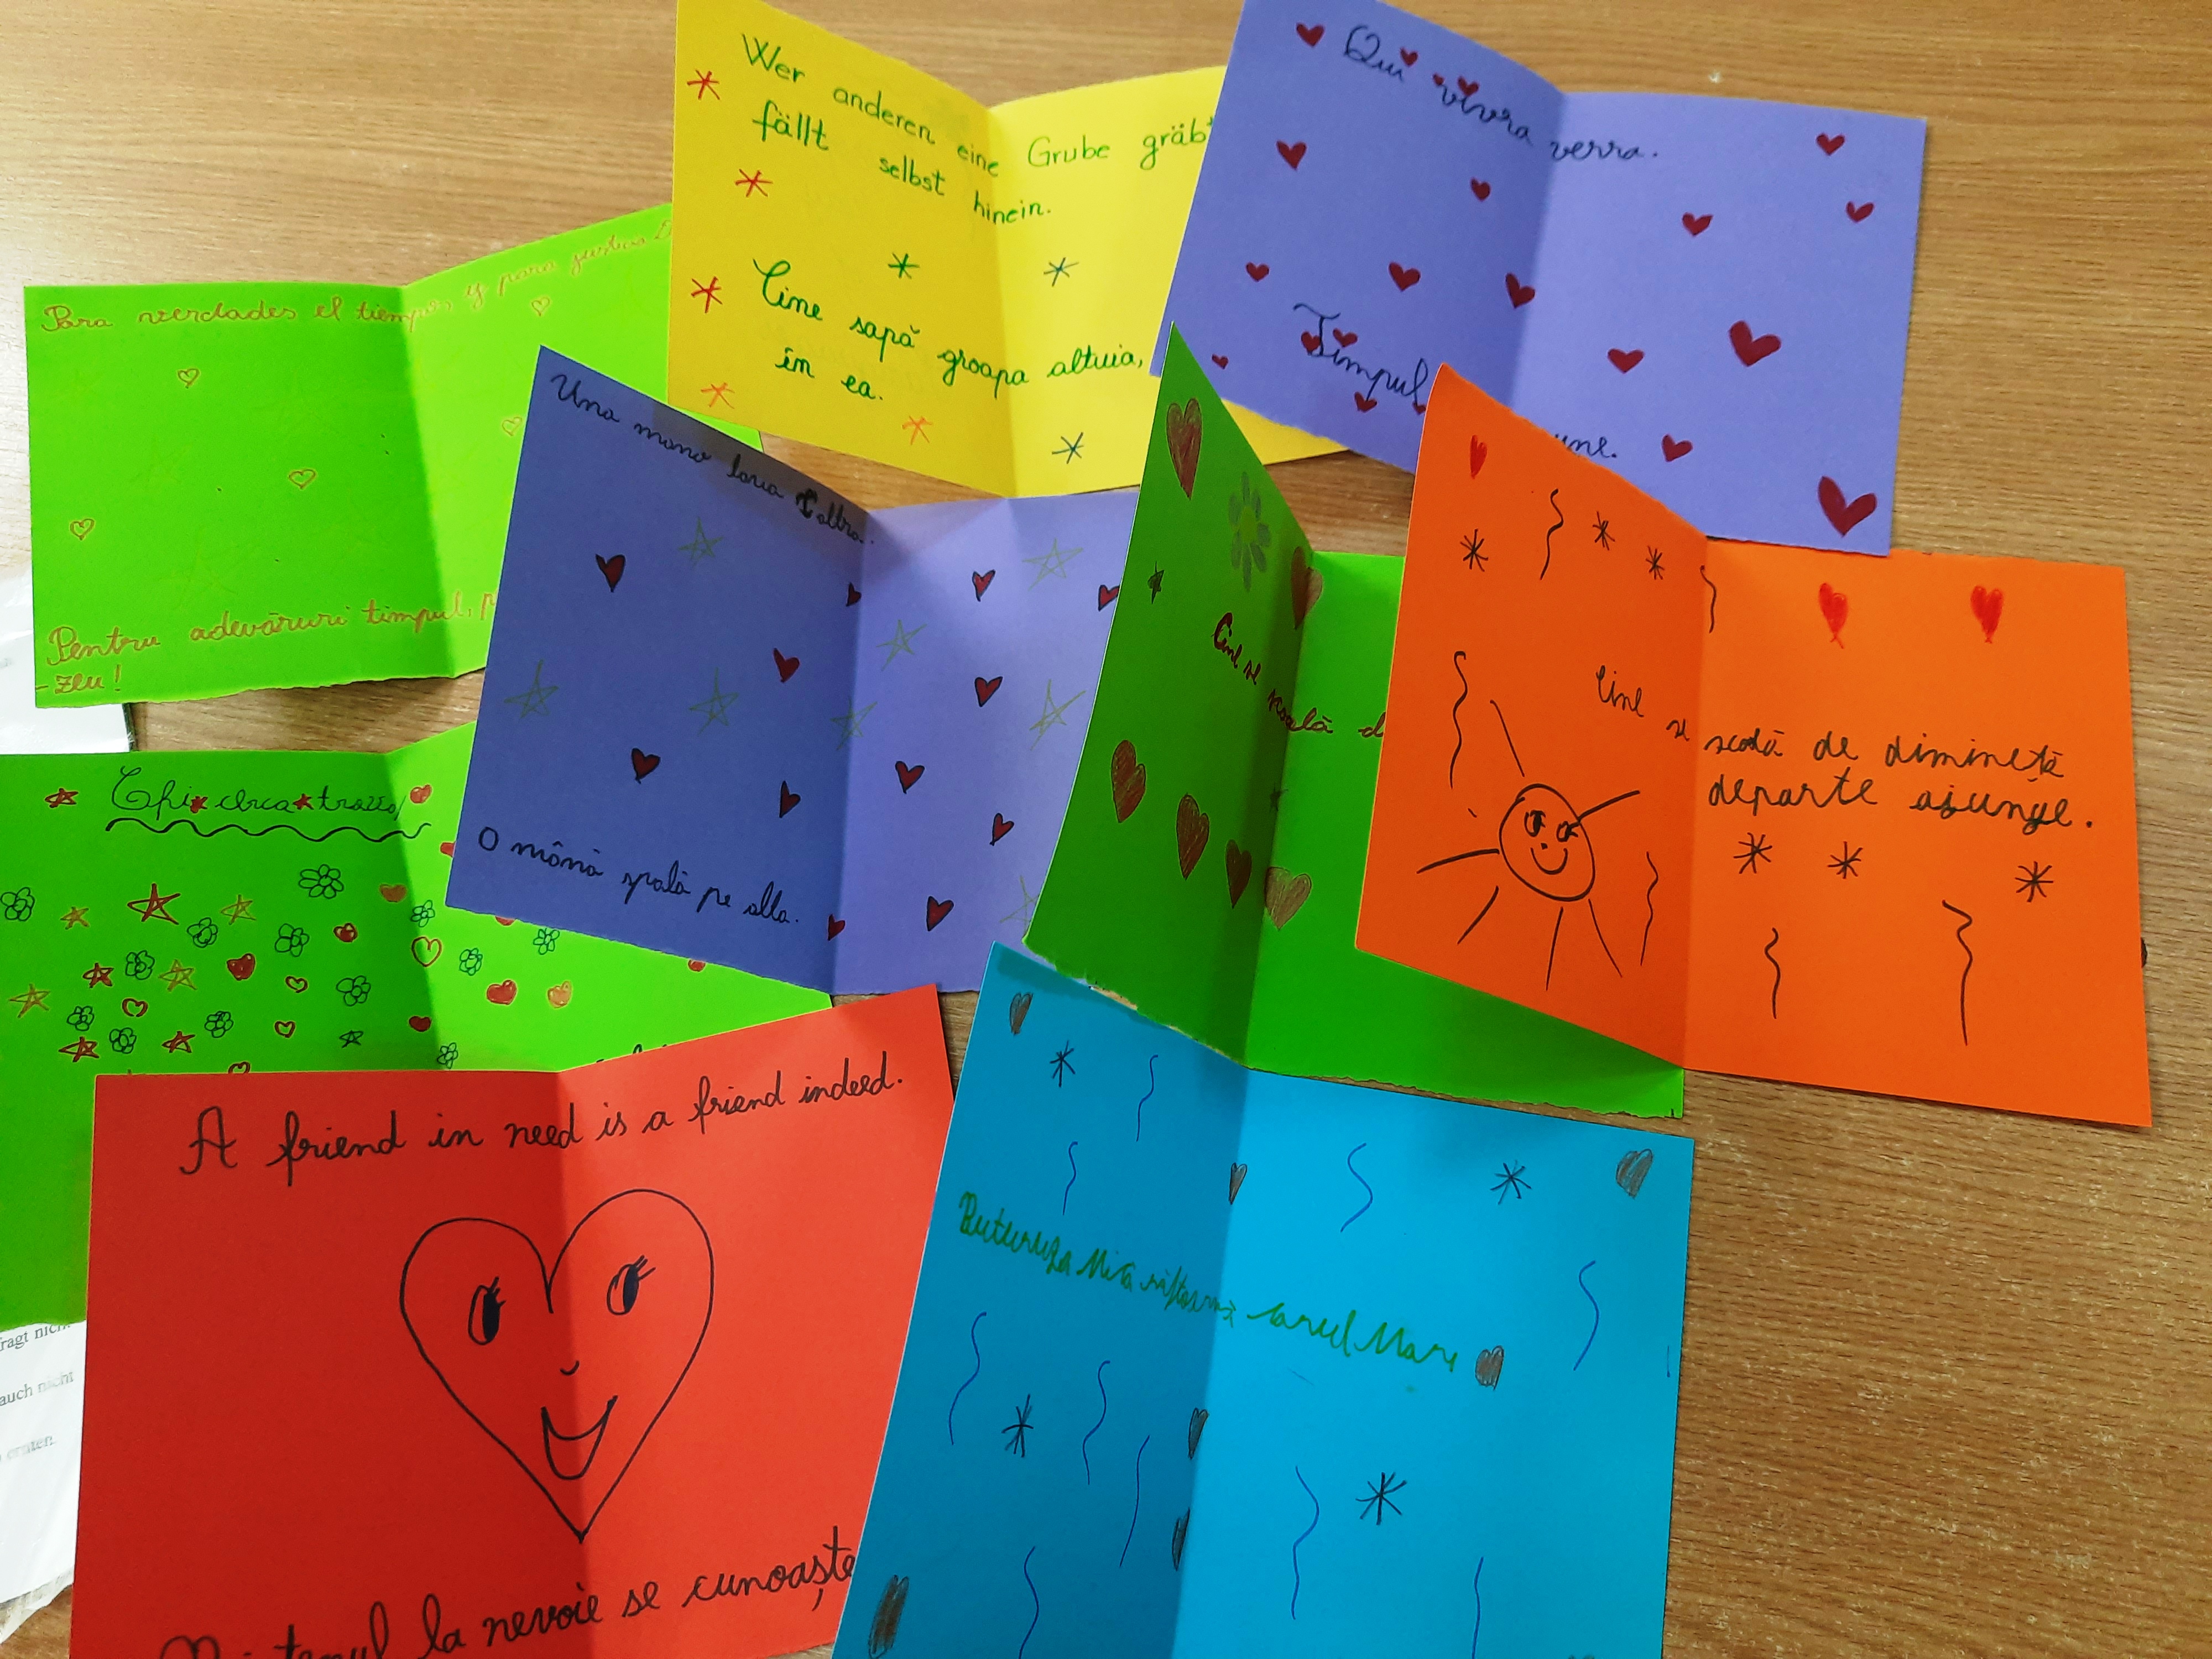 Wer anderen eine Grube gräbt
fällt selbst hinein.
Cine sapă groapa altuia,
în ea.
Qui vivra verra.
Timpul
une.
Para verdades el tiempo, y para justicia D
Pentru adevăruri timpul, p
-zeu!
Una mano lava l'altra.
O mână spală pe alta.
Cine se scoală d
Cine se scolă de dimineță
departe ajunge.
Chi cerca trova
A friend in need is a friend indeed.
la nevoie se cunoaște
Buturuga Mică răstoarnă carul Mare
fragt nich
auch nicht